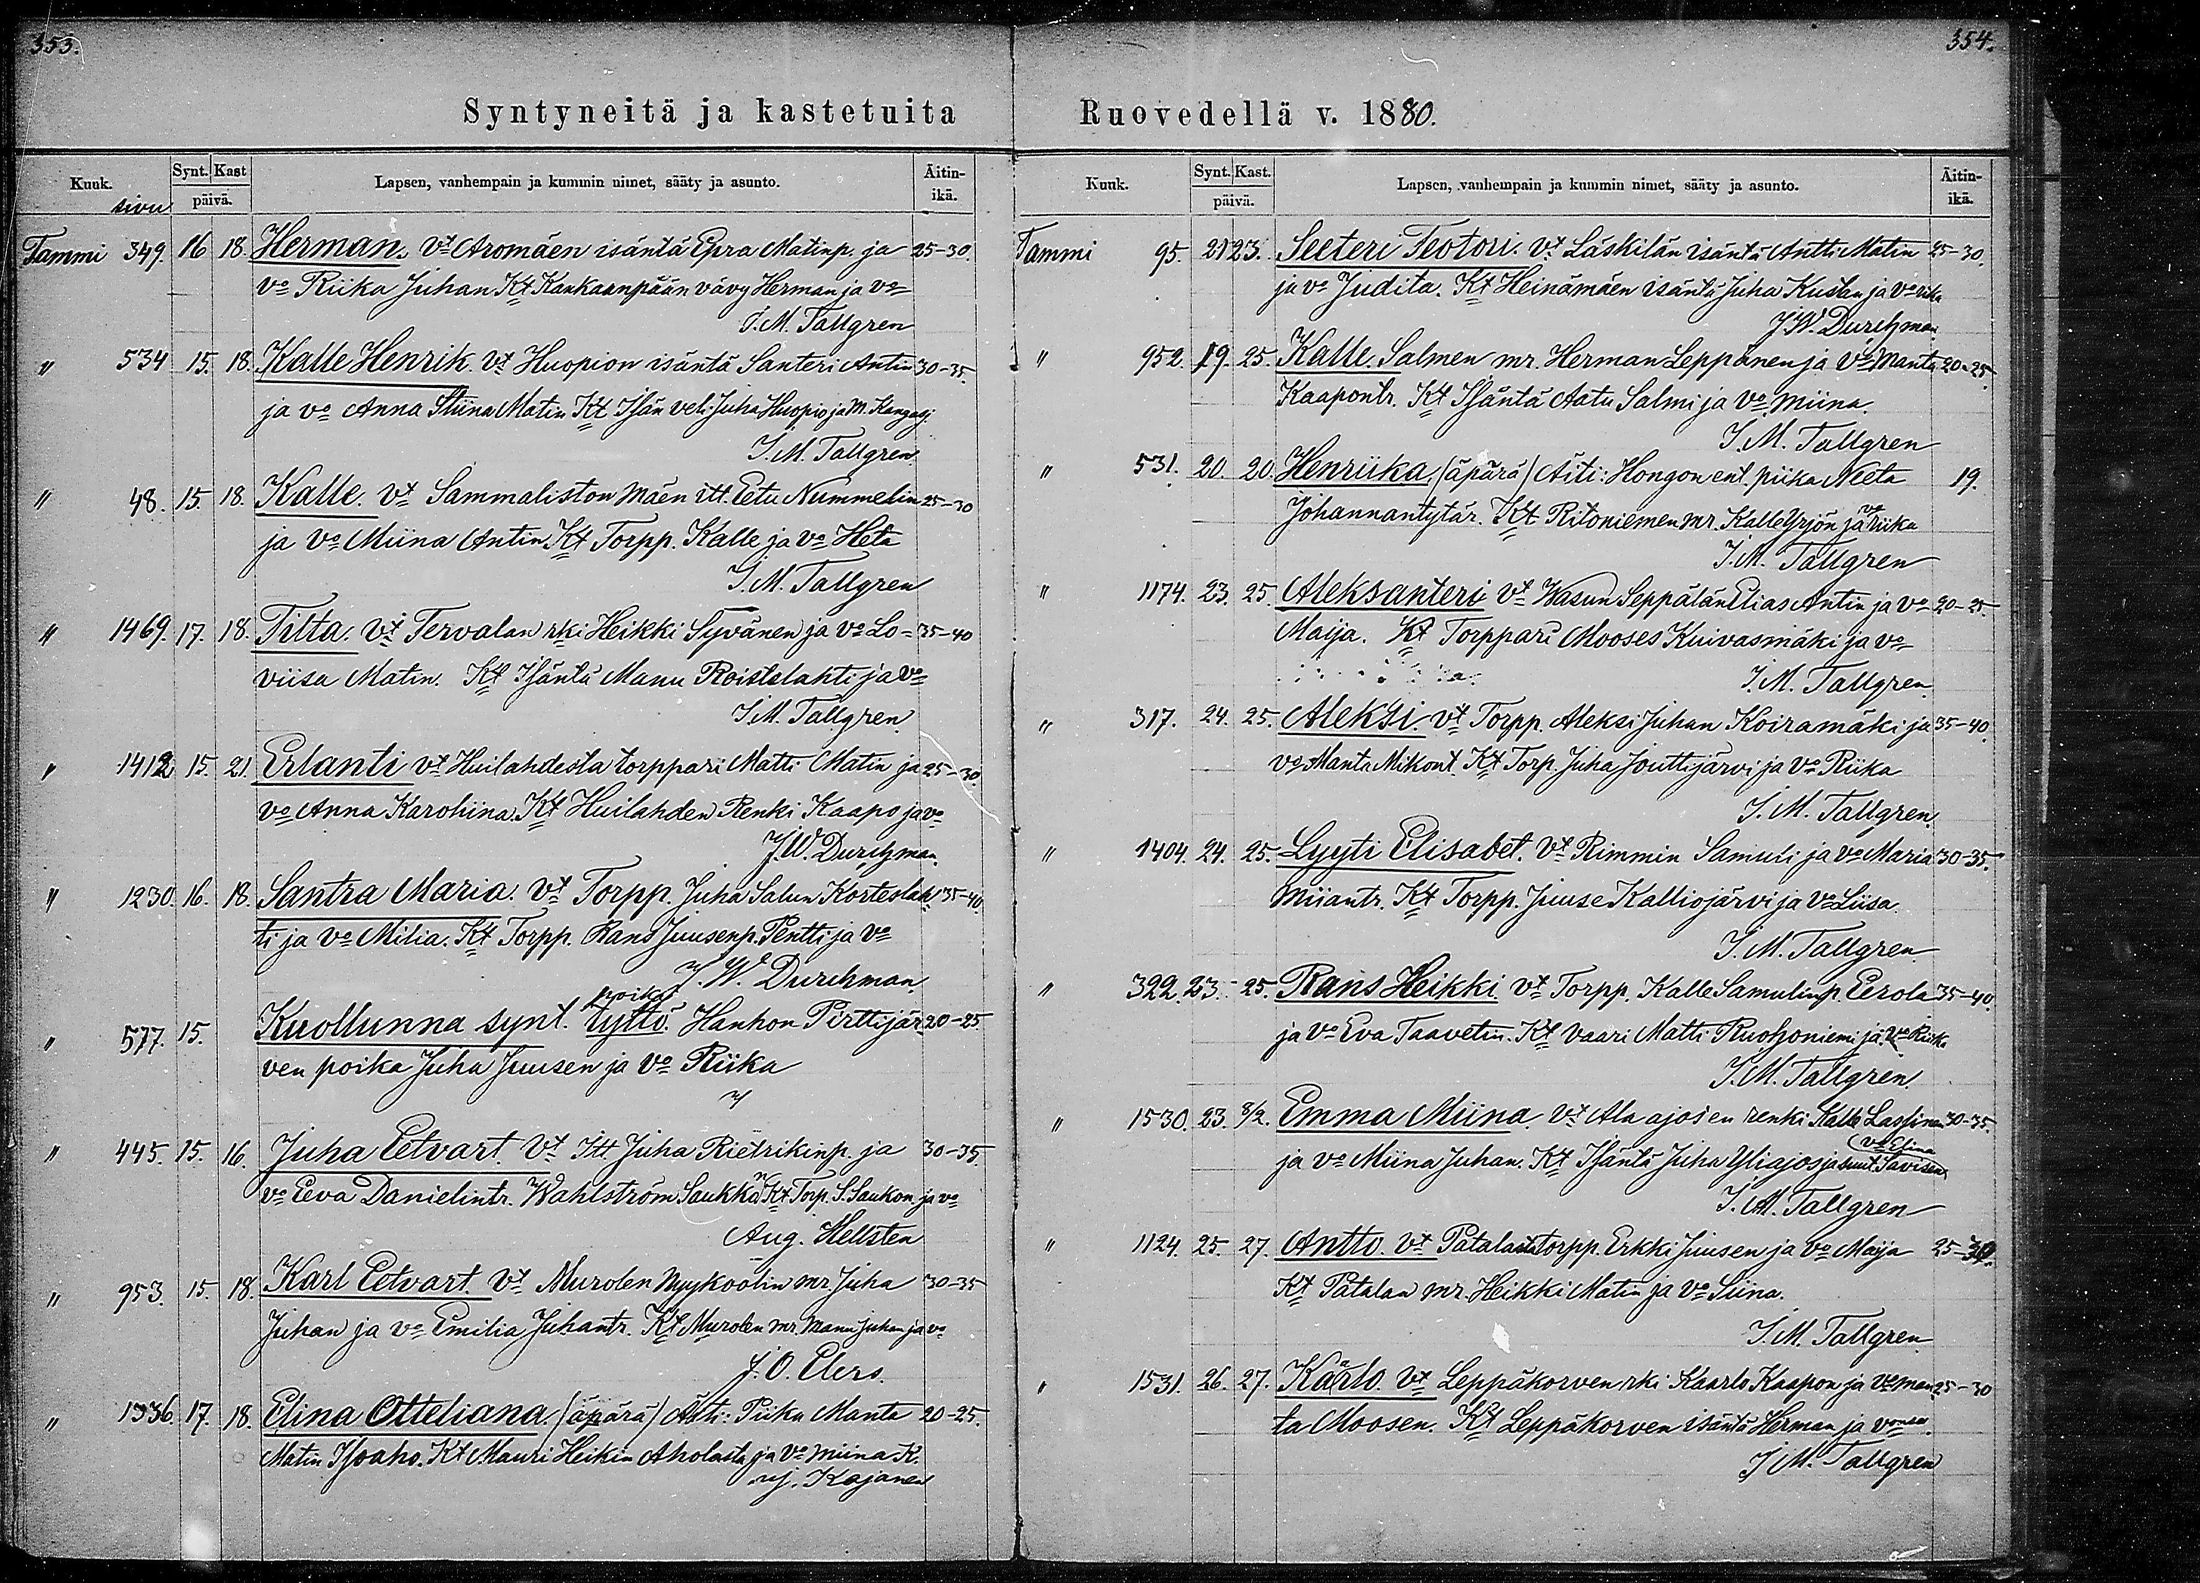 353.
Syntyneitä ja kastetuita
Kuuk. sivu Synt. Kast päivä. Lapsen, vanhempain ja kummin nimet, sääty ja asunto. Äitin-ikä.
Tammi 349. 16 18. Herman. vt Aromäen isäntä Epra Matinp. ja 25-30.
vo Riika Juhan Kt Kankaanpään vävy Herman ja vo
I. M. Tallgren
" 534 15. 18. Kalle Henrik. vt Huopion isäntä Santeri Antin 30-35.
ja vo Anna Stiina Matin Kt Isän veli Juha Huopio ja M. Kangasj.
I. M. Tallgren.
" 48. 15. 18. Kalle. vt Sammaliston Mäen itt. Eetu Nummelin 25-30
ja vo Miina Antin Kt Torpp. Kalle ja vo Heta
I. M. Tallgren
" 1469. 17. 18. Tilta. vt Tervalan rki Heikki Syvänen ja vo Lo= 35-40
viisa Matin. Kt Isäntä Manu Roistslahti ja vo
I. M. Tallgren.
" 1412 15. 21. Erlanti vt Huilahdesta torppari Matti Matin ja 25-30.
vo Anna Karohina. Kt Huilahden Renki Kaapo ja vo
J. W. Durchman.
" 1230. 16. 18. Santra Maria. vt Torpp. Juha Salun Korteslah 35-40.
ti ja vo Milia. Kt Torpp. Rans Juusenp. Pentti ja vo
J. W. Durchman.
poika
" 577. 15. Kuollunna synt. tyttö. Hanhon Pirttijär 20-25.
ven poika Juha Juusen ja vo Riika
" 445. 15. 16. Juha Eetvart. vt Itt Juha Rietrikinp. ja 30-35.
vo Eeva Danielintr. Wahlström Saukkon Kt Torp. S. Saukon ja vo
Aug. Hellsten
" 953. 15. 18. Karl Eetvart. vt Murolen Nyykoolin mr. Juha 30-35
Juhan ja vo Emilia Juhantr. Kt Murolen mr. Manu Juhan ja vo
J. O. Elers.
" 1336. 17. 18. Elina Otteliana (äpärä) Äiti: Piika Manta 20-25.
Matin Isoaho. Kt Mauri Heikin Aholasta ja vo Miina K.
Kajanen
354.
Ruovedellä v. 1880.
Kuuk. Synt. Kast. päivä. Lapsen, vanhempain ja kummin nimet, sääty ja asunto. Äitin-ikä.
Tammi 95. 21 23. Seeteri Teotori. vt Läskilän isäntä Antti Matin 25-30.
ja vo Judita. Kt Heinämäen isäntä Juha Kustan ja vo Vika
J. W. Durchman
" 952. 19. 25. Kalle. Salmen mr. Herman Leppänen ja vo Manta 20-25.
Kaapontr. Kt Isäntä Aatu Salmi ja vo Miina.
I. M. Tallgren
" 531. 20. 20. Henriika. (äpärä) Äiti: Hongon ent. piika Neeta 19.
Johannantytär. Kt Ritoniemen mr. Kalle Yrjön ja vo Riika
I. M. Tallgren
" 1174. 23. 25. Aleksanteri vt Wasun Seppälän Elias Antin ja vo 20-25.
Maija. Kt Torppari Mooses Kuivasmäki ja vo
I. M. Tallgren.
" 317. 24. 25. Aleksi. vt Torpp. Aleksi Juhan Koiramäki ja 35-40.
vo Manta Mikont. Kt Torp. Juha Jouttijärvi ja vo Riika
I. M. Tallgren.
" 1404. 24. 25. Lyyti Elisabet. vt Rimmin Samuli ja vo Maria 30-35.
Miiantr. Kt Torpp. Juuse Kalliojärvi ja vo Liisa.
I. M. Tallgren.
" 322. 23. 25. Rans Heikki. vt Torpp. Kalle Samulinp. Eerola 35-40.
ja vo Eva Taavetin. Kt Vaari Matti Ruohoniemi ja vo Riika
I. M. Tallgren.
" 1530. 23. 8/2. Emma Miina. vt Ala ajosen renki Kalle Lassinen 30-35.
ja vo Miina Juhan. Kt Isäntä Juha Yliajos ja
I. M. Tallgren
" 1124. 25. 27. Antto. vt Patalasta torpp. Erkki Juusen ja vo Maija 25-30.
Kt Patalan mr. Heikki Matin ja vo Siina.
I. M. Tallgren.
" 1531. 26. 27. Kaarlo. vt Leppäkorven rki Kaarlo Kaapon ja vo Man 25-30
ta Moosen. Kt Leppäkorven isäntä Herman ja
I. M. Tallgren